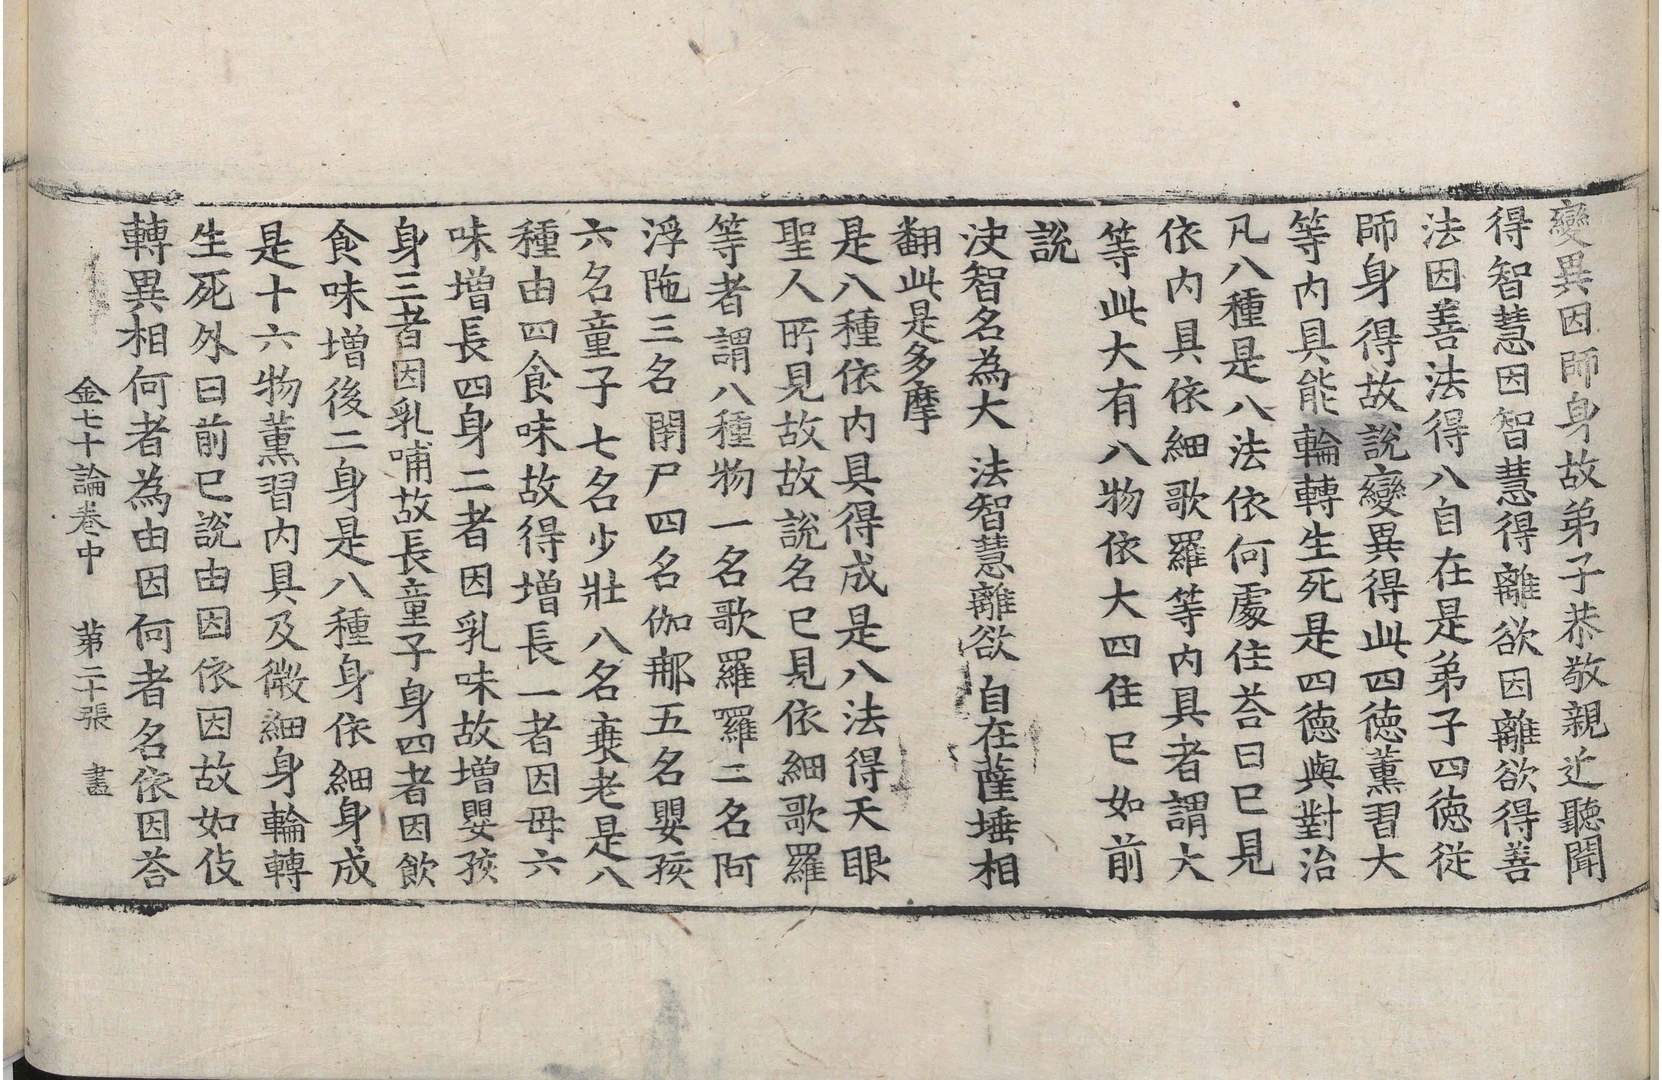 變異因師身故弟子恭敬親近聽聞
得智慧因智慧得離欲因離欲得善
法因善法得八自在是弟子四徳従
師身得故說變異得此四徳薰習大
等内具能輪轉生死是四徳與對治
凡八種是八法依何處住荅曰已見
依内具依細歌羅等内具者謂大
等此大有八物依大四住已如前
說
決智名為大 法智慧離欲 自在薩埵相
翻此是多摩
是八種依内具得成是八法得天眼
聖人所見故故說名已見依細歌羅
等者謂八種物一名歌羅羅二名阿
浮陁三名閉尸四名伽那五名嬰孩
六名童子七名少壯八名衰老是八
種由四食味故得增長一者因母六
味增長四身二者因乳味故增嬰孩
身三者因乳哺故長童子身四者因飲
食味增後二身是八種身依細身成
是十六物薰習内具及微細身輪轉
生死外曰前已說由因依因故如伎
轉異相何者為由因何者名依因荅
金七十論卷中 第二十張 畫